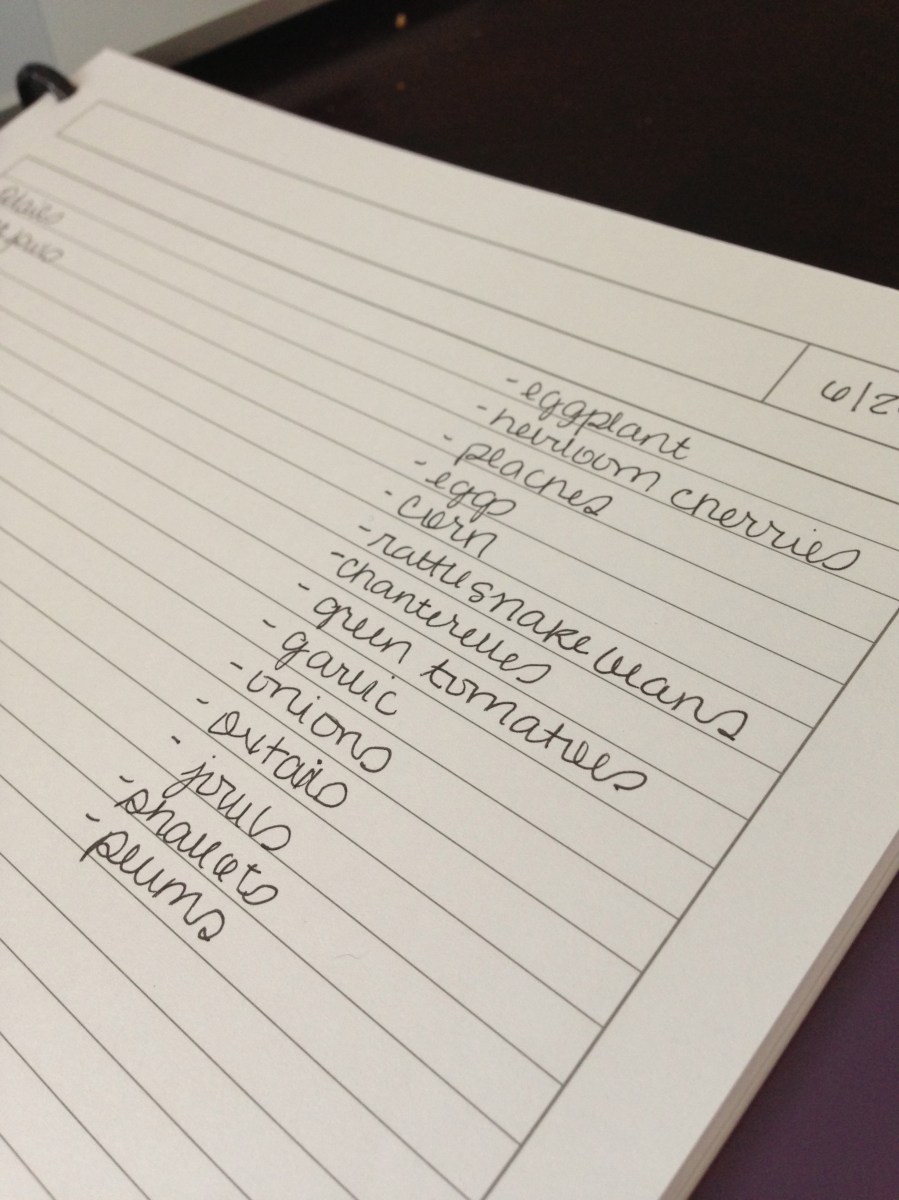 6/2
- eggplant
- heirloom cherries
- peaches
- eggs
- corn
- rattlesnake beans
- chanterelles
- green tomatoes
- garlic
- onions
- oxtails
- jowls
- shallots
- plums